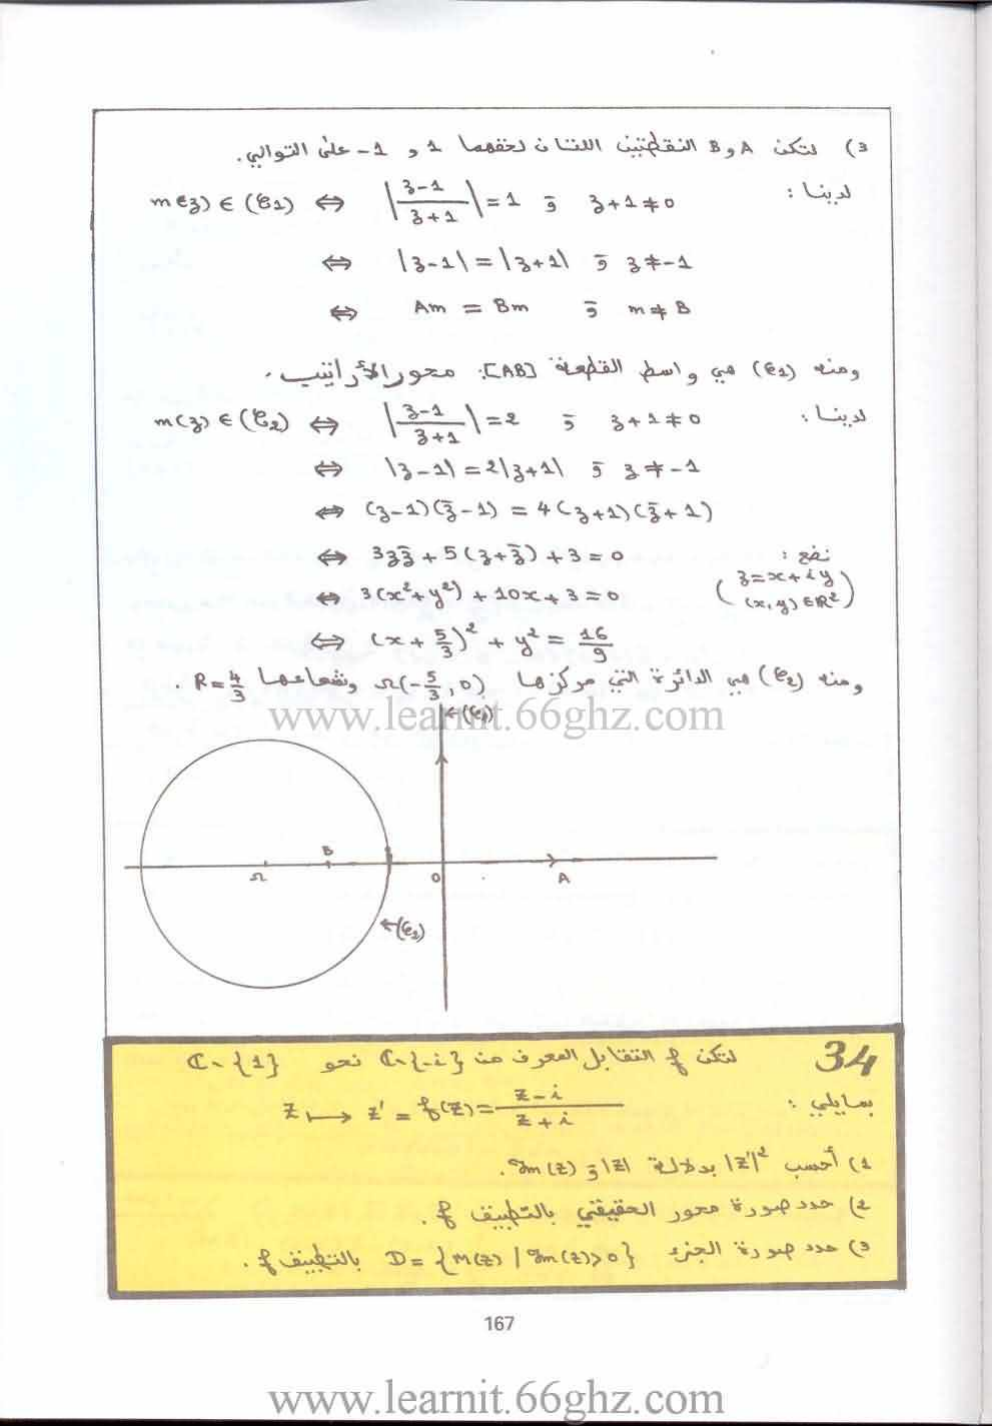 3) لتكن A و B النقطتين اللتان لحقهما 1 و 1- على التوالي.
لدينا : m(z) ∈ (C₁) ⇔ |z-1 / z+1| = 1 و z+1 ≠ 0
⇔ |z-1| = |z+1| و z ≠ -1
⇔ Am = Bm و m ≠ B
ومنه (C₁) هي واسط القطعة [AB]: محور الأراتيب.
لدينا : m(z) ∈ (C₂) ⇔ |z-1 / z+1| = 2 و z+1 ≠ 0
⇔ |z-1| = 2|z+1| و z ≠ -1
⇔ (z-1)(z̄-1) = 4(z+1)(z̄+1)
⇔ 3zz̄ + 5(z+z̄) + 3 = 0 نضع :
⇔ 3(x²+y²) + 10x + 3 = 0 (z = x+iy (x,y) ∈ ℝ²)
⇔ (x + 5/3)² + y² = 16/9
ومنه (C₂) هي الدائرة التي مركزها Ω(-5/3, 0) وشعاعها R = 4/3 .
www.learnit.66ghz.com
←(C₁)
B
Ω O A
←(C₂)
34 لتكن f التقابل المعرف من ℂ∖{-i} نحو ℂ∖{1}
بمايلي : z ↦ z' = f(z) = z-i / z+i
1) أحسب |z'|² بدلالة |z| و Im(z).
2) حدد صورة محور الحقيقي بالتطبيق f .
3) حدد صورة الجزء D = {M(z) / Im(z)>0} بالتطبيق f .
167
www.learnit.66ghz.com